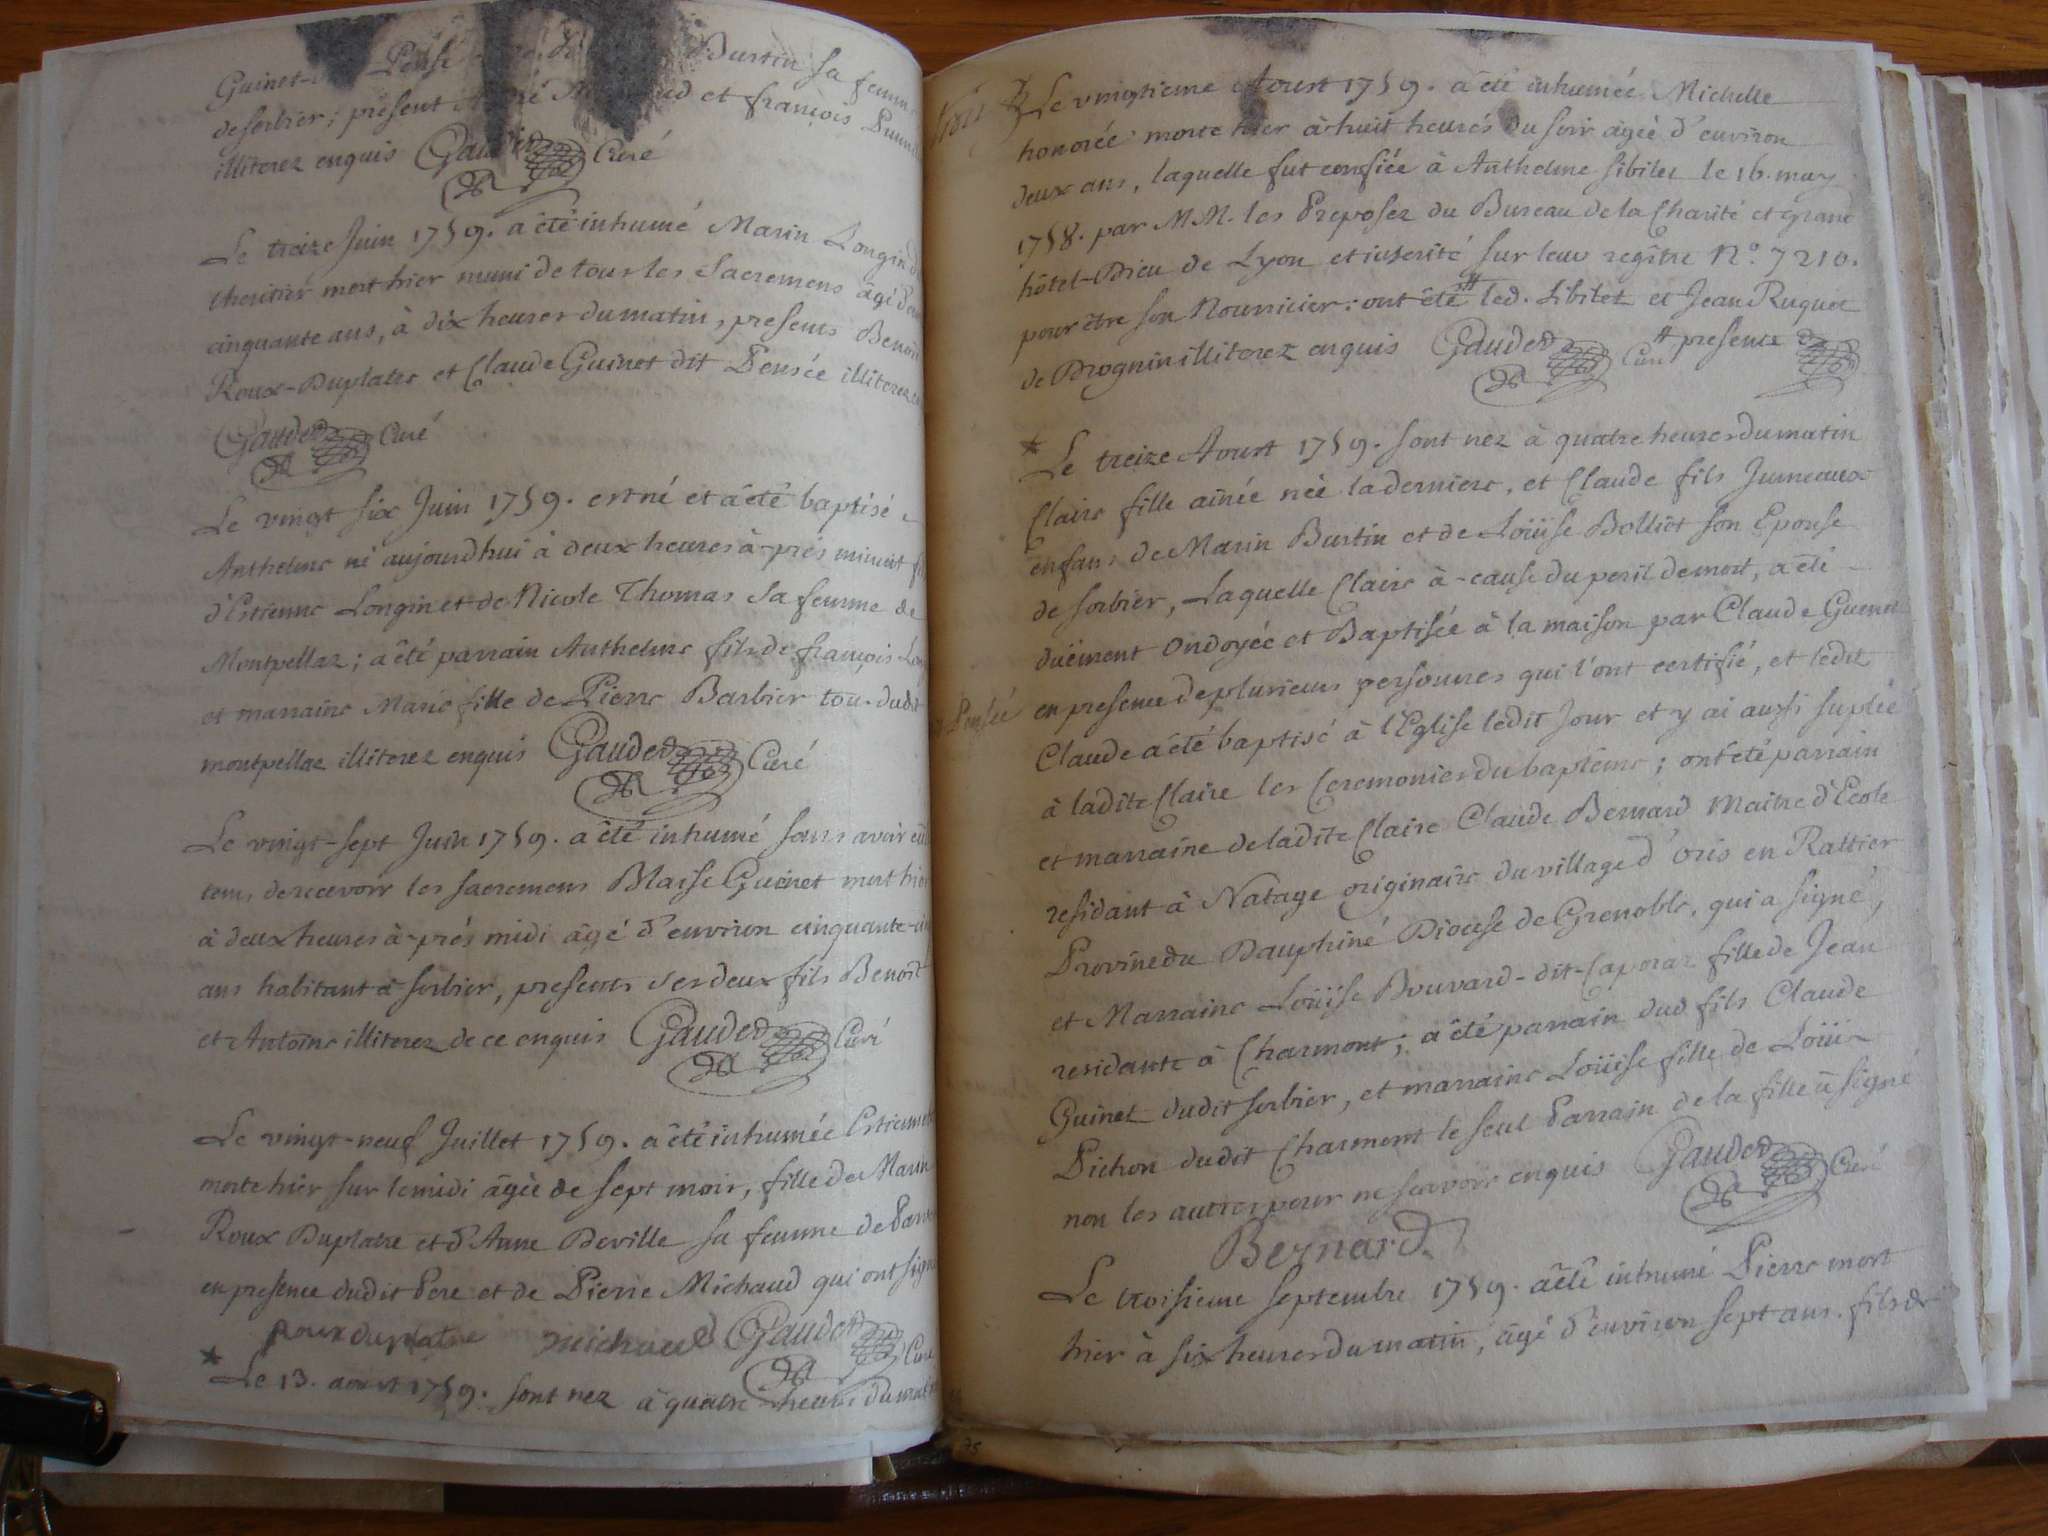 Guinet- Pensé Burtin sa femme
de sorbier; présent et françois
illiterez enquis Gaudet Curé
Le treize Juin 1759. a êté inhumé Marin Longin
mort hier muni de tous les Sacremens âgé
cinquante ans, à dix heures du matin, presents Benoit
Roux-Duplatre et Claude Guinet dit Pensée illiterez
Gaudet Curé
Le vingt six Juin 1759. est né et a êté baptisé
Anthelme né aujourdhui à deux heures à-près minuit
d'Estienne Longin et de Nicole Thomas sa femme de
Montpellaz; a êté parrain Anthelme fils de françois
et marraine Marie fille de Pierre Barbier tous dudit
montpellaz illiterez enquis Gaudet Curé
Le vingt-sept Juin 1759. a êté inhumé sans avoir eu
tems de recevoir les sacremens Blaise Guinet mort hier
à deux heures à-près midi âgé d'environ cinquante-
ans habitant à sorbier, presents ses deux fils Benoit
et Antoine illiterez de ce enquis Gaudet Curé
Le vingt-neuf Juillet 1759. a êté inhumée Estiennette
morte hier sur le midi âgée de sept mois, fille de Marin
Roux Duplatre et d'Anne Deville sa femme de
en presence dudit Pere et de Pierre Michaud qui ont signé
roux duplatre michaud Gaudet Curé
* Le 13. aoust 1759. sont nez à quatre heures du matin
Le vingtieme Aoust 1759. a êté inhumée Michelle
honorée morte hier à huit heures du soir âgée d'environ
deux ans, laquelle fut confiée à Anthelme Sibilet le 16. may
1758. par M.M. les Preposez du Bureau de la Charité et grand
hôtel-Dieu de Lyon et inscrite sur leur regître N°. 7210.
pour être son Nourricier: ont êté # led. Sibilet et Jean Ruquet
de Brognin illiterez enquis Gaudet Curé # presents
* Le treize Aoust 1759. sont nez à quatre heures du matin
Claire fille ainée née la derniere, et Claude fils Jumeaux
enfans de Marin Burtin et de Loüise Bolliet son Epouse
de sorbier, Laquelle Claire à-cause du peril de mort, a êté
düement Ondoyée et Baptisée à la maison par Claude Guinet
Pensée
en presence de plusieurs personnes qui l'ont certifié, et ledit
Claude a êté baptisé à l'Eglise ledit Jour et y ai aussi suplée
à ladite Claire les Ceremonies du baptême; ont êté parrain
et marraine de ladite Claire Claude Bernard Maitre d'Ecole
residant à Natage originaire du village d'oris en Rattier
Province du Dauphiné Diocése de Grenoble, qui a signé,
et Marraine Loüise Bouvard-dit-Caporaz fille de Jean
residante à Charmont; a êté parrain dud fils Claude
Guinet dudit sorbier, et marraine Loüise fille de Loüis
Pichon dudit Charmont le seul Parrain de la fille a signé
non les autres pour ne scavoir enquis Gaudet Curé
Bernard
Le troisieme septembre 1759. a êté inhumé Pierre mort
hier à six heures du matin, âgé d'environ sept ans. fils de